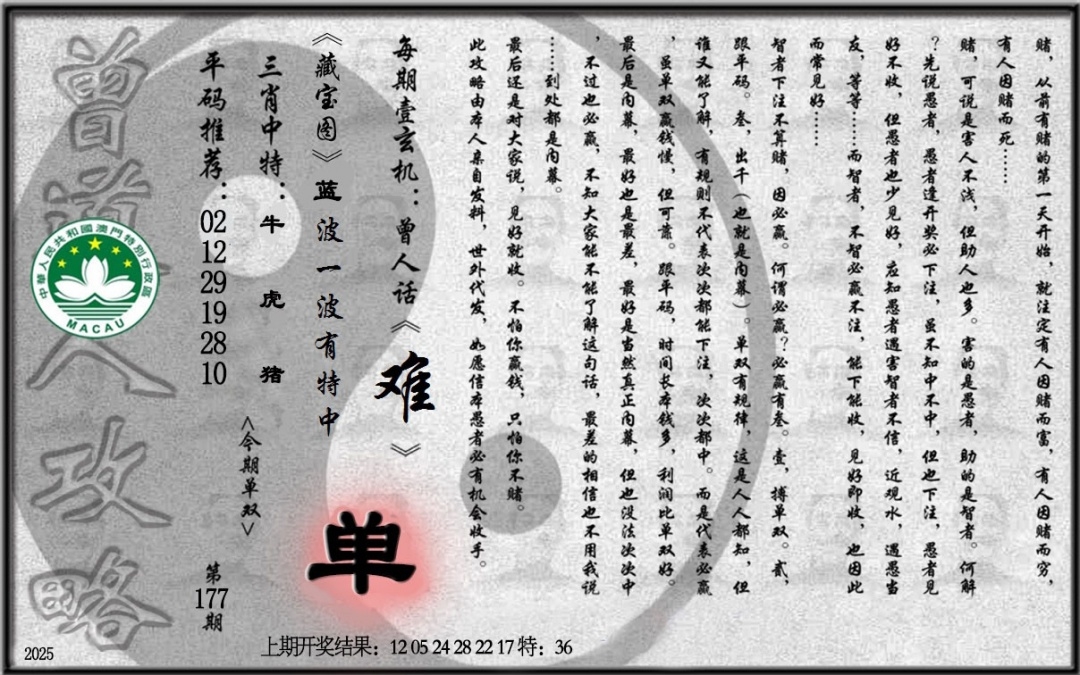 赌，从前有赌的第一天开始，就注定有人因赌而富，有人因赌而穷，
有人因赌而死……
赌，可说是害人不浅，但助人也多。害的是愚者，助的是智者。何解
？先说愚者，愚者逢开奖必下注，虽不知中不中，但也下注，愚者见
好不收，但愚者也少见好，应知愚者遇害智者不信，近观水，遇愚当
友，等等……而智者，不智必赢不注，能下能收，见好即收，也因此
而常见好……
智者下注不算赌，因必赢。何谓必赢？必赢有叁。壹，搏单双。贰，
跟平码。叁，出千（也就是内幕）。单双有规律，这是人人都知，但
谁又能了解，有规则不代表次次都能下注，次次都中。而是代表必赢
，虽单双赢钱慢，但可靠。跟平码，时间长本钱多，利润比单双好。
最后是内幕，最好也是最差，最好是当然真正内幕，但也没法次次中
，不过也必赢，不知大家能不能了解这句话，最差的相信也不用我说
……到处都是内幕。
最后还是对大家说，见好就收。不怕你赢钱，只怕你不赌。
此攻略由本人亲自发料，世外代发，如愿信本愚者必有机会收手。
每期壹玄机：曾人话《难》
《藏宝图》蓝波一波有特中
单
三肖中特：牛 虎 猪
<今期单双>
平码推荐：02 12 29 19 28 10
第177期
曾道人攻略
中華人民共和國澳門特別行政區
MACAU
上期开奖结果：12 05 24 28 22 17 特：36
2025